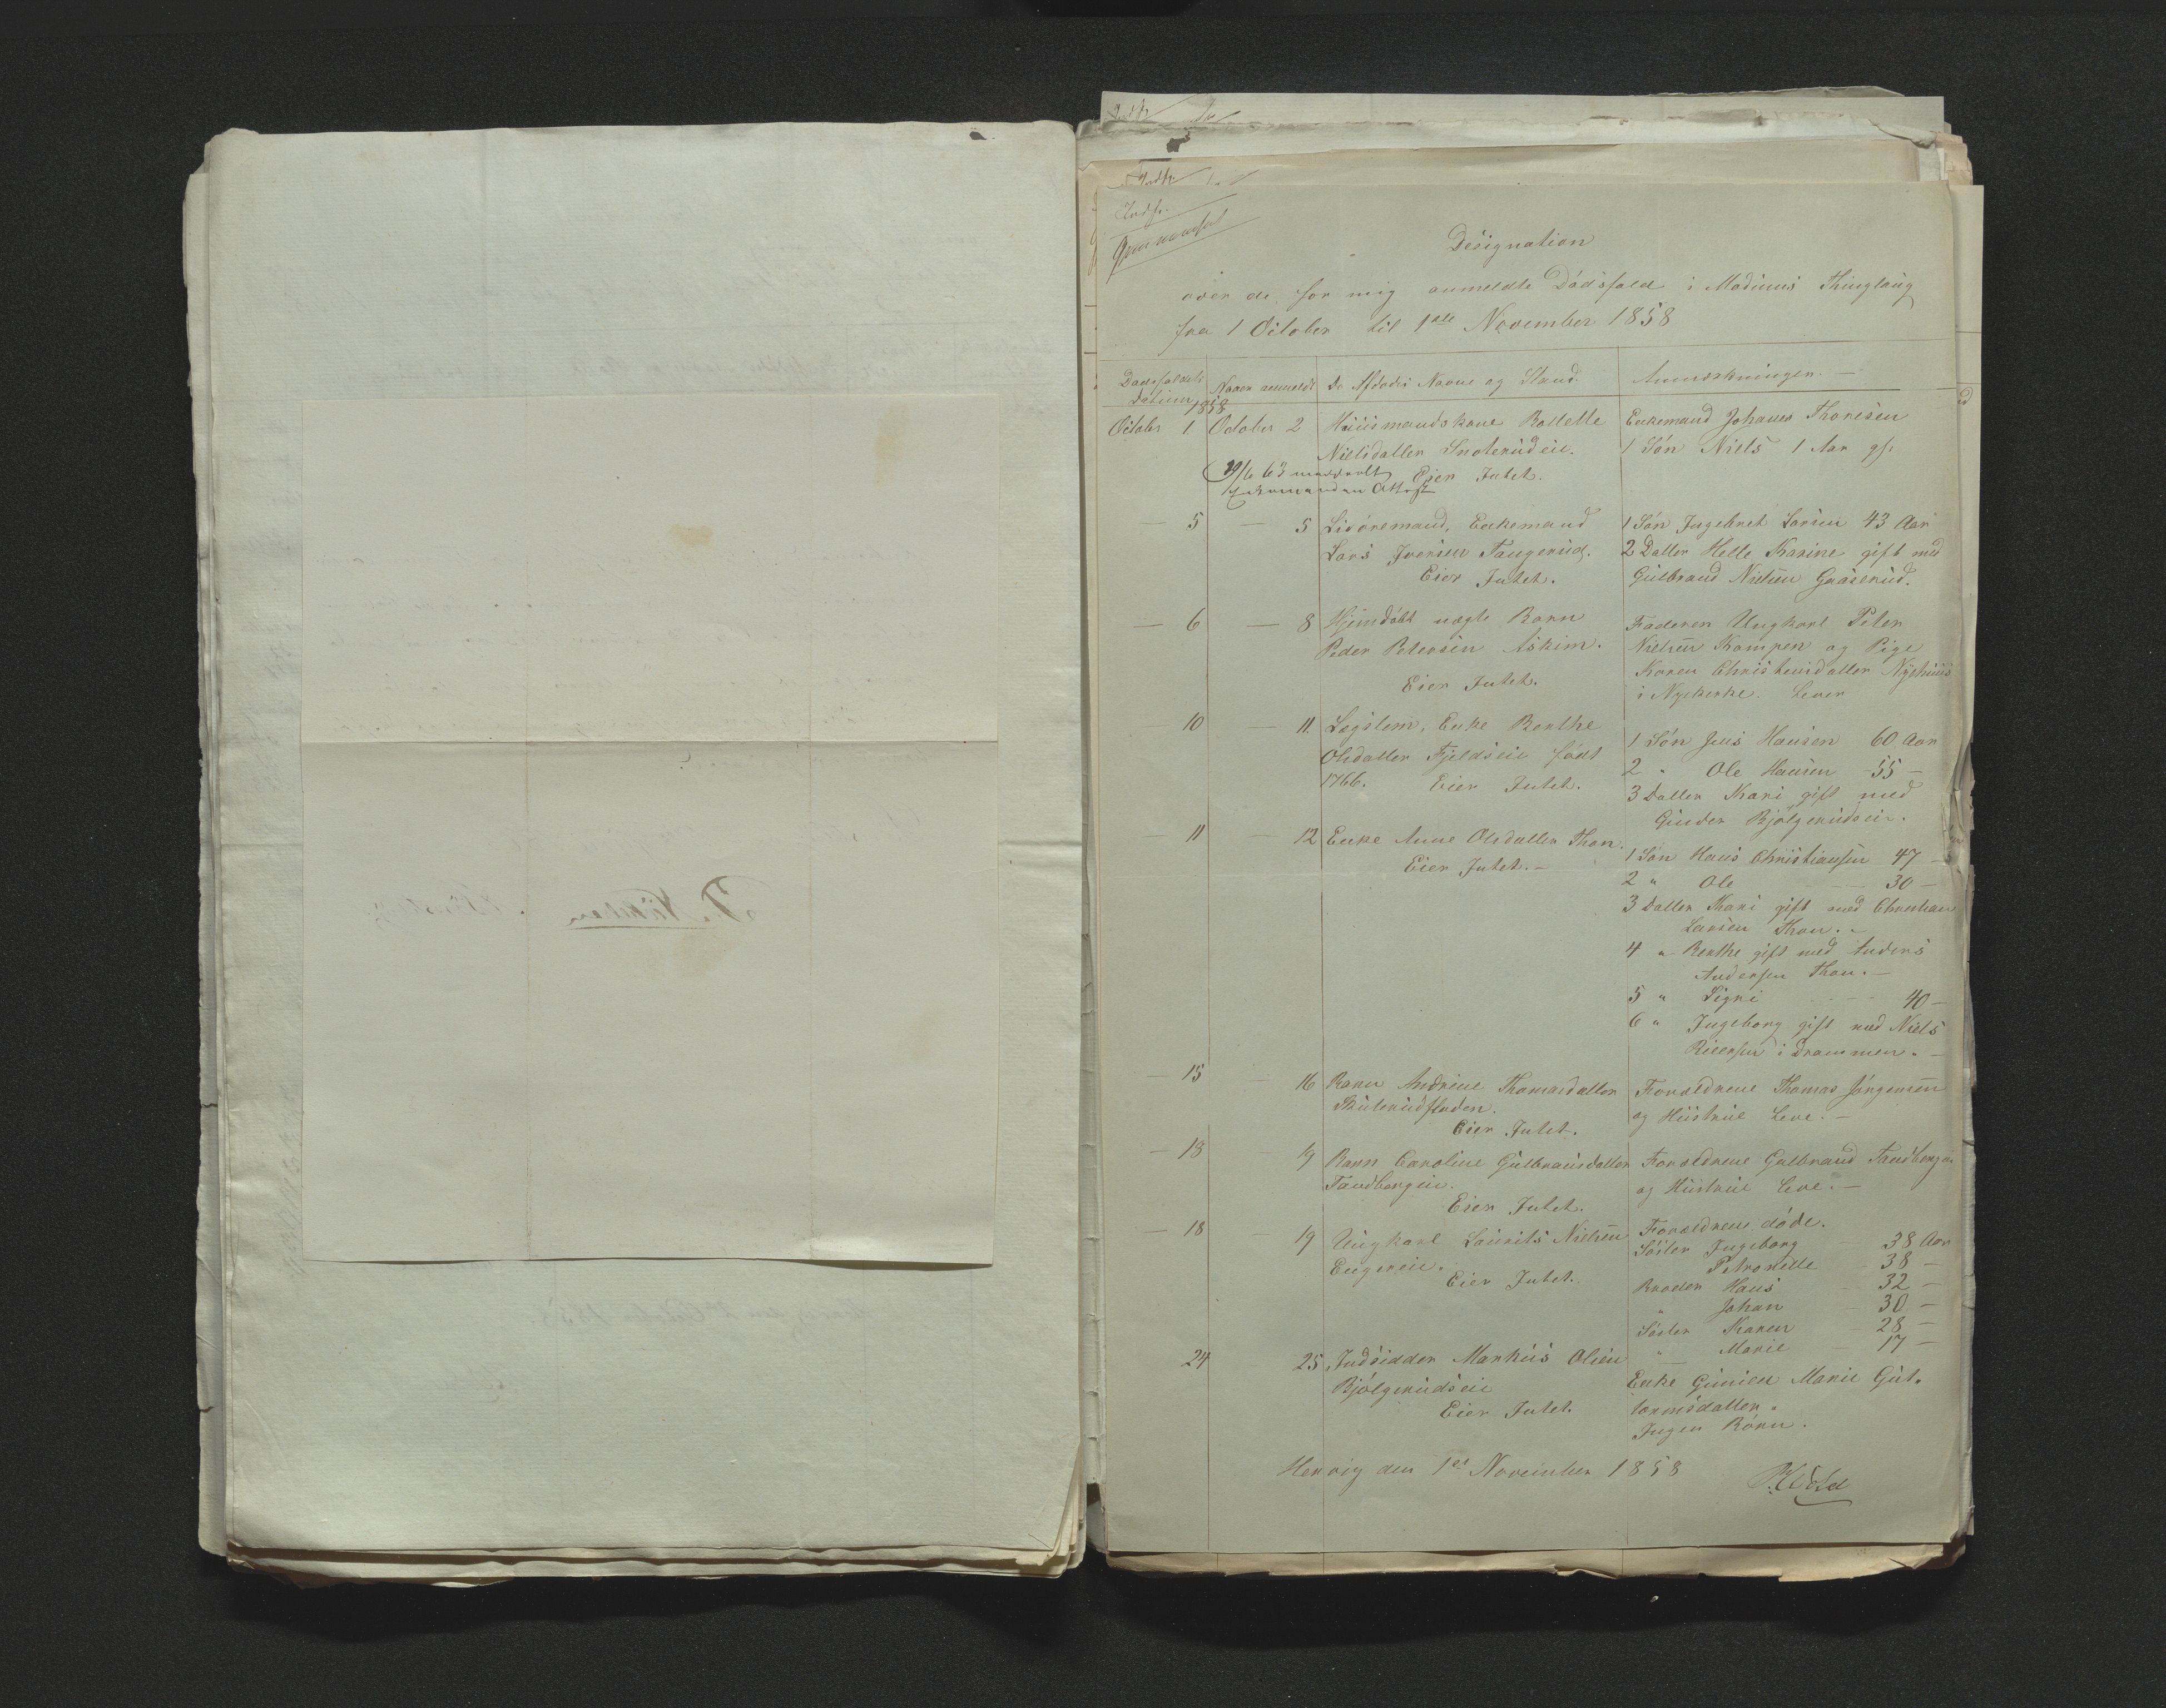 Indf.
Gjennemset
Designation
over de for mig anmeldte Dödsfald i Modums Thinglaug
fra 1 October til 1ste November 1858
Dødsfaldets Datum
Naar anmeldt
De Afdødes Navne og Stand.
Anmærkninger. —
1858
October 1 October 2 Huusmandskone Bollette
Nielsdatter Snoterudeie.
Eier Intet.
Enkemand Johannes Thoresen
1 Sön Niels 1 Aar gl.
29/6 63 meddeelt
Enkemanden Attest
— 5 — 5 Livöremand, Enkemand
Lars Iversen Tangerud.
Eier Intet.
1 Sön Ingebret Larsen 43 Aar
2 Datter Helle Karine gift med
Gulbrand Nielsen Gaaserud.
— 6 — 8 Hjemdöbt uægte Barn
Peder Petersen Askim.
Eier Intet.
Faderen Ungkarl Peter
Nielsen Kampen og Pige
Karen Christensdatter Nyhuus
i Nykirke. Lever
— 10 — 11 Lægslem, Enke Berthe
Olsdatter Fjeldseie födt
1766. Eier Intet.
1 Sön Jens Hansen 60 Aar
2 " Ole Hansen 55 —
3 Datter Kari gift med
Gunder Bjölgerudseie.
— 11 — 12 Enke Anne Olsdatter Thon.
Eier Intet. —
1 Sön Hans Christiansen 47 —
2 " Ole 30 —
3 Datter Kari gift med Christian
Larsen Thon. —
4 " Berthe gift med Anders
Andersen Thon. —
5 " Signi 40 —
6 " Ingeborg gift med Niels
Reiersen i Drammen. —
— 15 — 16 Barn Andrine Thomasdatter
Skuterudfladen.
Eier Intet.
Forældrene Thomas Jörgensen
og Hustrue Leve. —
— 18 19 Barn Caroline Gulbransdatter
Tandbergeie.
Eier Intet.
Forældrene Gulbrand Tandbergei.
og Hustrue Leve. —
— 18 — 19 Ungkarl Laurits Nielsen
Engereie.
Eier Intet.
Forældrene döde.
Söster Ingeborg 38 Aar
Petronelle 38 —
Broder Hans 32 —
" Johan 30 —
Söster Karen 28 —
" Marie 17 —
24 25 Indsidder Markus Olsen
Bjölgerudseie
Eier Intet.
Enke Gunild Marie Gut-
tormsdatter.
Ingen Börn.
Henvig den 1ste November 1858